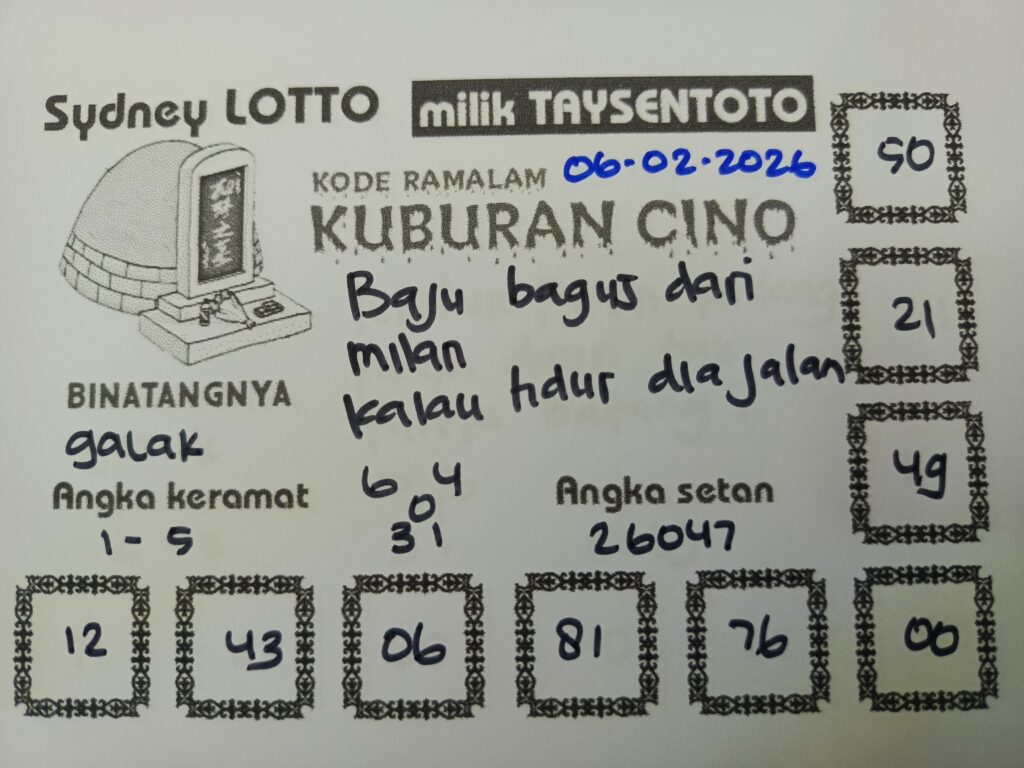 Sydney LOTTO
milik TAYSENTOTO
KODE RAMALAM 06-02-2026
KUBURAN CINO
Baju bagus dari
milan
kalau tidur dia jalan
BINATANGNYA
galak
Angka keramat
1 - 5
6 4
0
31
Angka setan
26047
50
21
49
12 43 06 81 76 00